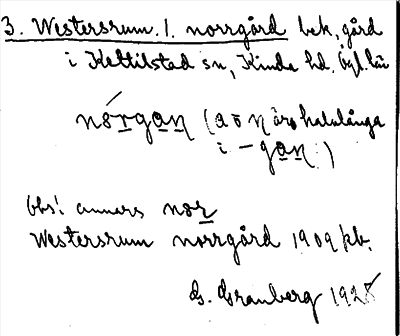 3. Westersrum. 1. norrgård bek. gård
i Kettilstad sn, Kinda hd. Ögl. län
nórgan (a o n äro halvlånga
i -gan.)
obs! annars nor
Westersrum norrgård 1909 jb.
G. Granberg 1925